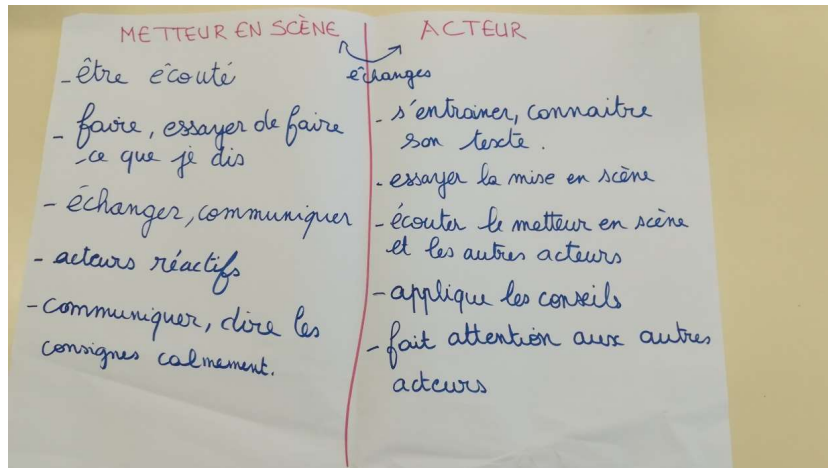 METTEUR EN SCÈNE
- être écouté
- faire, essayer de faire
- ce que je dis
- échanger, communiquer
- acteurs réactifs
- communiquer, dire les
consignes calmement.
échanges
ACTEUR
- s'entrainer, connaitre
son texte.
- essayer la mise en scène
- écouter le metteur en scène
et les autres acteurs
- applique les conseils
- fait attention aux autres
acteurs